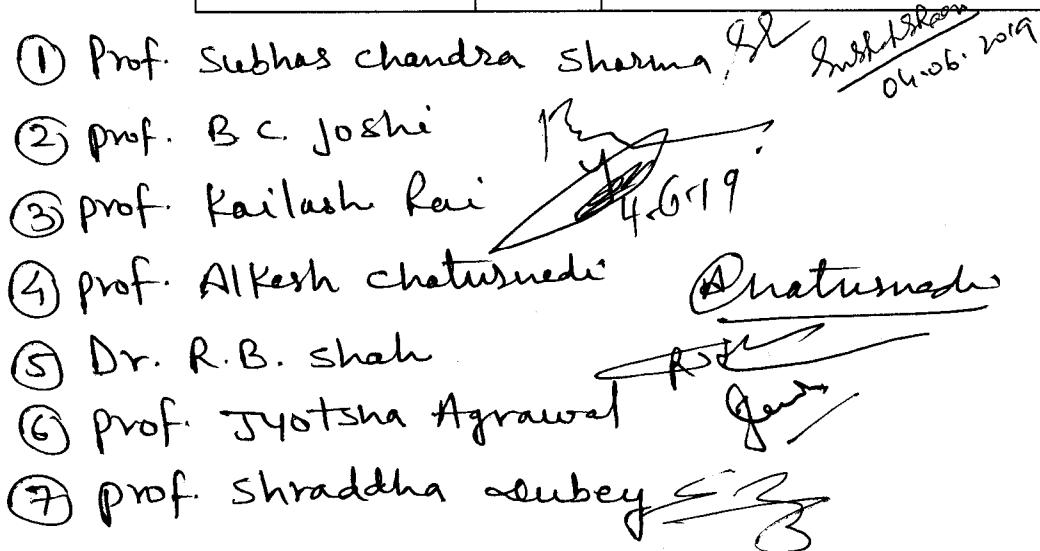 ① Prof. Subhas chandra Sharma
04.06.2019
② prof. B C. Joshi
③ prof. Kailash Rai
4.6.19
④ prof. Alkesh chaturvedi
Chaturvedi
⑤ Dr. R.B. shah
⑥ prof. Jyotsna Agrawal
⑦ prof. Shraddha Dubey